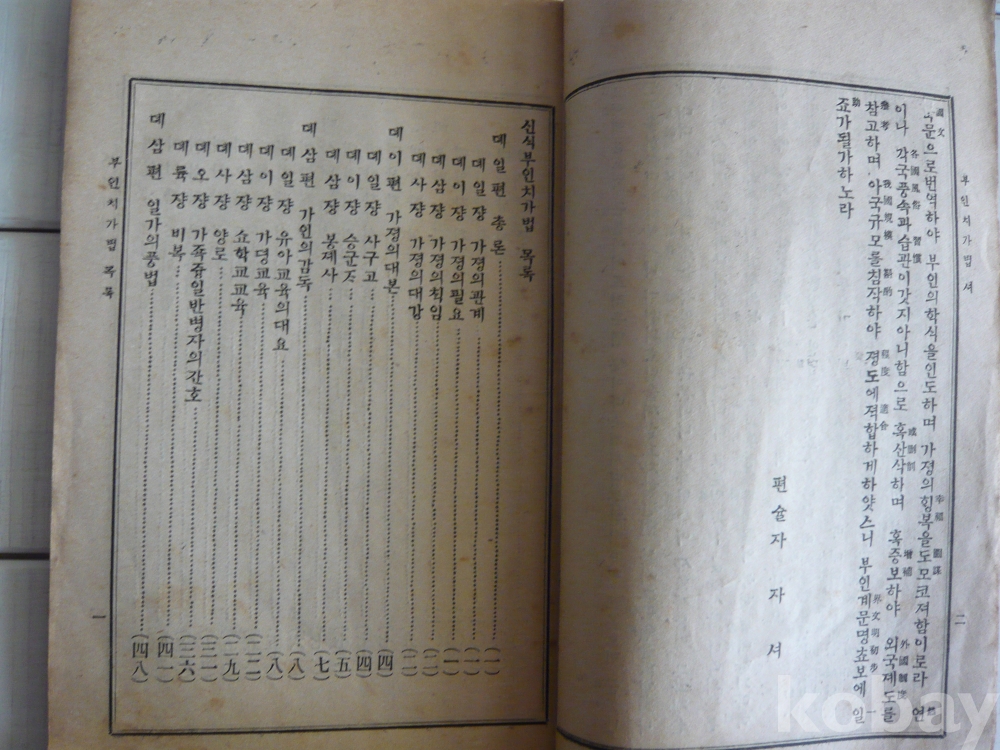 부인치가법 셔
二
국문으로번역하야 부인의학식을인도하며 가졍의힝복을도모코져함이로라 연
國文 幸福 圖謀 然
이나 각국풍속과습관이갓지아니함으로 혹산삭하며 혹증보하야 외국졔도를
各國風俗 習慣 或刪削 增補 外國制度
참고하며 아국규모를침작하야 졍도에젹합하게하얏스니 부인계문명쵸보에 일
參考 我國規模 斟酌 程度 適合 界文明初步 一
죠가될가하노라
助
편술자 자셔
신식부인치가법 목록
뎨일편 총론 (一)
뎨일쟝 가졍의관계 (一)
뎨이쟝 가졍의필요 (一)
뎨삼쟝 가졍의칙임 (二)
뎨사쟝 가졍의대감 (二)
뎨이편 가졍의대본 (四)
뎨일쟝 사구고 (四)
뎨이쟝 승군 (五)
뎨삼쟝 봉졔사 (七)
뎨삼편 가인의감독 (八)
뎨일쟝 유아교육의대요 (八)
뎨이쟝 가뎡교육 (二二)
뎨삼쟝 쇼학교교육 (二九)
뎨사쟝 양로 (三一)
뎨오쟝 가죡즁일반병자의간호 (三六)
뎨륙쟝 비복 (四一)
뎨삼편 일가의풍법 (四八)
부인치가법 목록
一
kobay